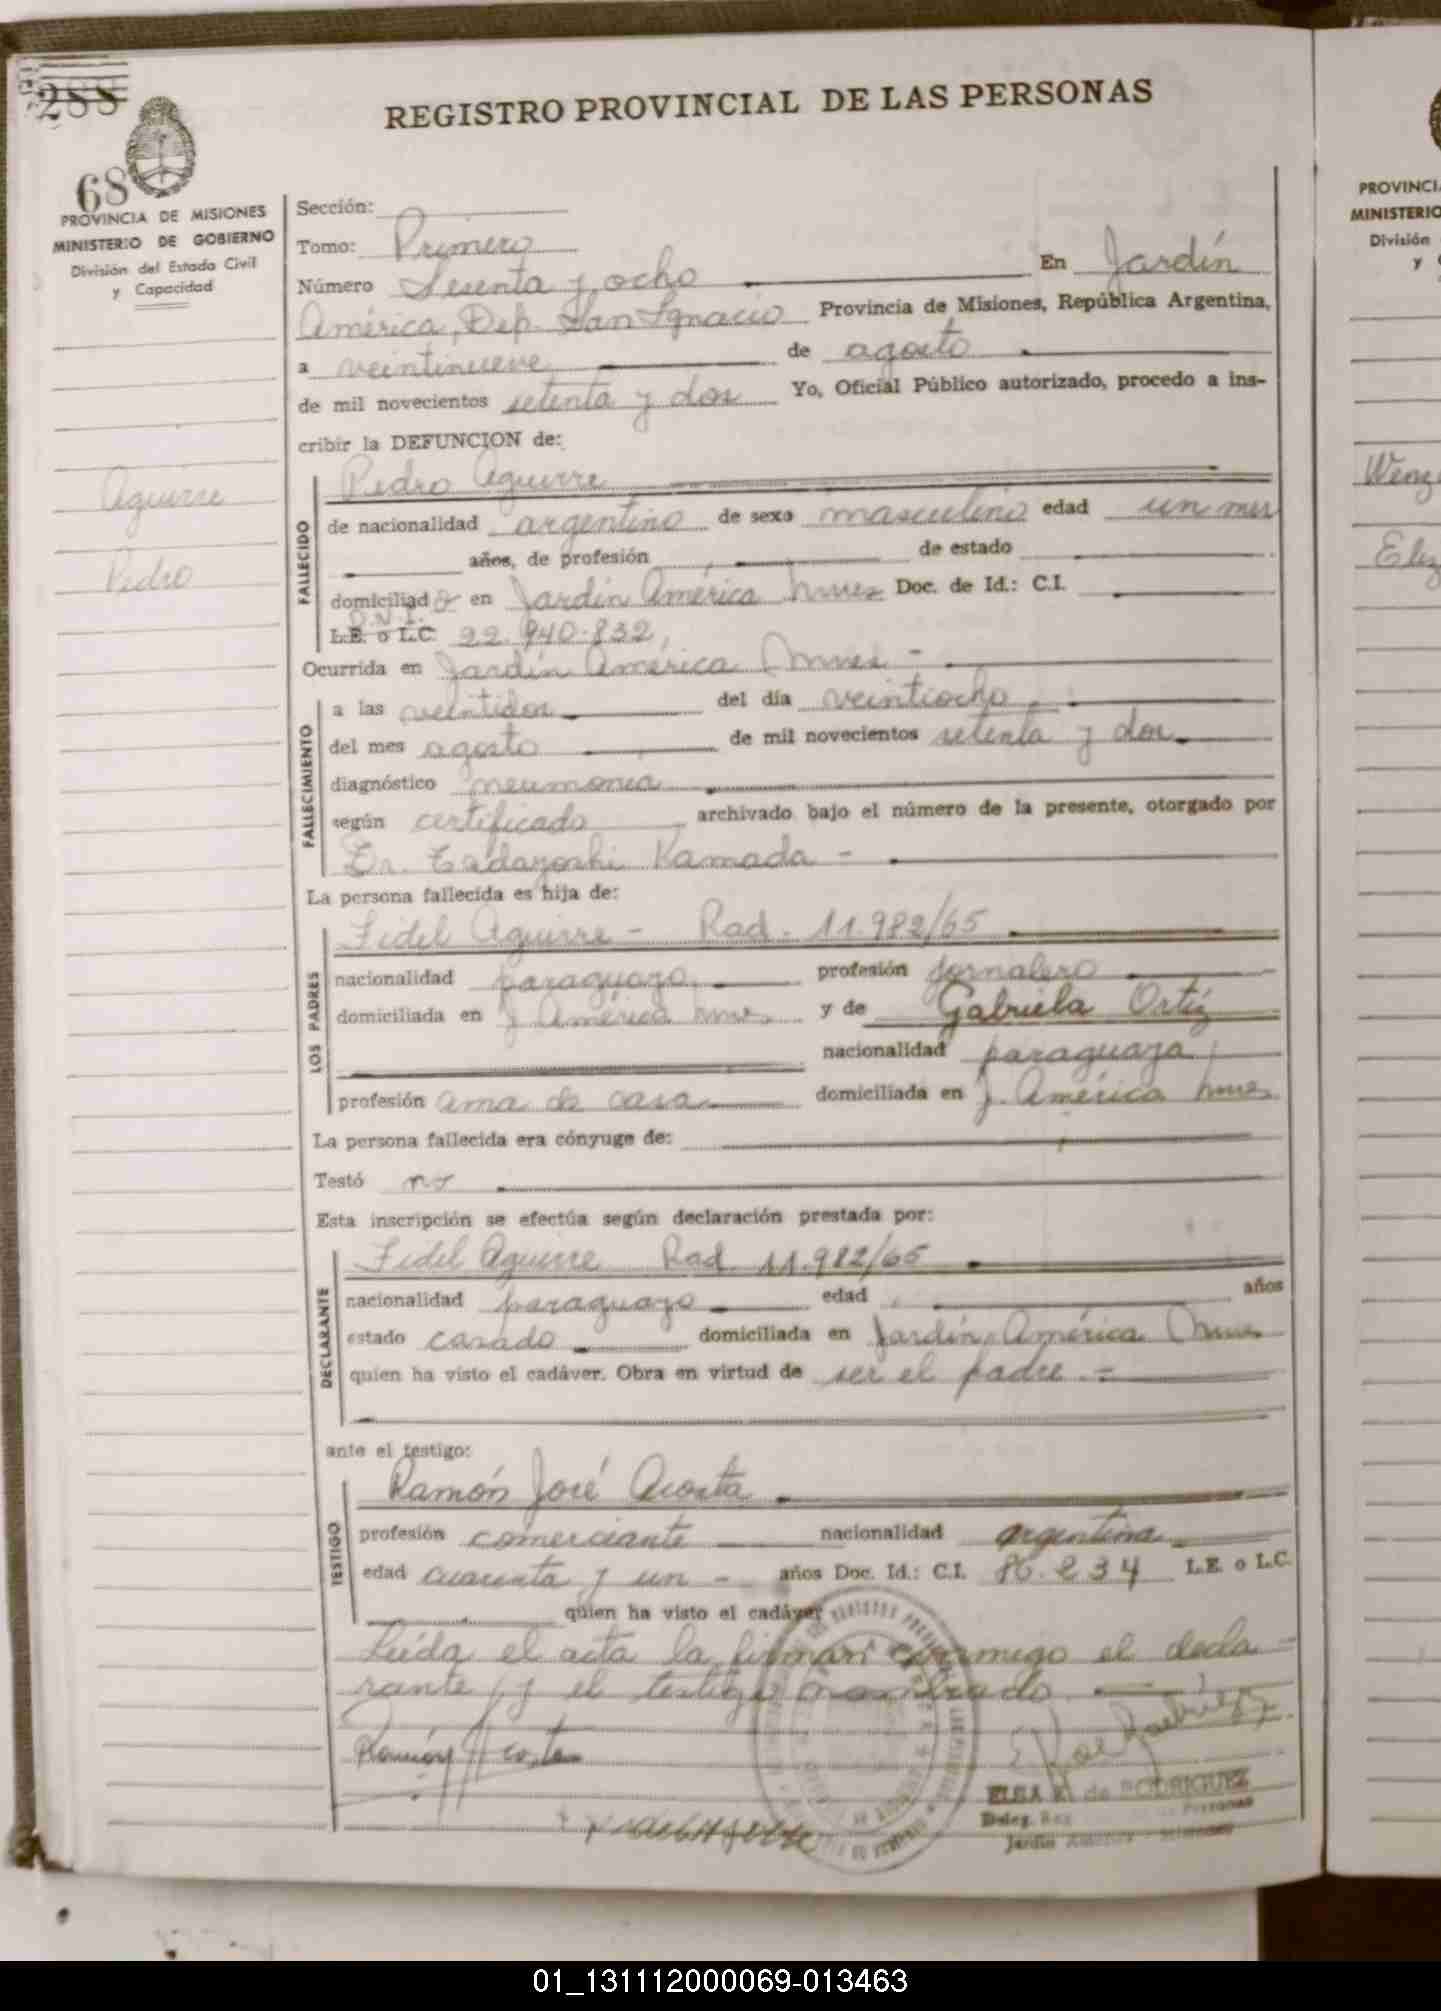 288
68
REGISTRO PROVINCIAL DE LAS PERSONAS
PROVINCIA DE MISIONES
MINISTERIO DE GOBIERNO
División del Estado Civil
y Capacidad
Aguirre
Pedro
Sección:
Tomo: Primero
Número Sesenta y ocho En Jardín
América, Dep. San Ignacio Provincia de Misiones, República Argentina,
a veintinueve de agosto
de mil novecientos setenta y dos Yo, Oficial Público autorizado, procedo a ins-
cribir la DEFUNCION de:
FALLECIDO
Pedro Aguirre
de nacionalidad argentino de sexo masculino edad un mes
años, de profesión de estado
domiciliado en Jardín América Mnes Doc. de Id.: C.I.
D.N.I.
L.E. o L.C. 22.940.832
Ocurrida en Jardín América Mnes -
FALLECIMIENTO
a las veintidos del día veintiocho
del mes agosto de mil novecientos setenta y dos
diagnóstico neumonia
según certificado archivado bajo el número de la presente, otorgado por
Dr. Tadayoshi Kamada -
La persona fallecida es hija de:
LOS PADRES
Fidel Aguirre - Rad. 11.982/65
nacionalidad paraguayo profesión jornalero
domiciliada en J. América Mnes. y de Gabriela Ortíz
nacionalidad paraguaya
profesión ama de casa domiciliada en J. América Mnes
La persona fallecida era cónyuge de:
Testó no
Esta inscripción se efectúa según declaración prestada por:
DECLARANTE
Fidel Aguirre Rad. 11.982/65
nacionalidad paraguayo edad años
estado casado domiciliada en Jardín América Mnes
quien ha visto el cadáver. Obra en virtud de ser el padre.-
ante el testigo:
TESTIGO
Ramón José Acosta
profesión comerciante nacionalidad argentina
edad cuarenta y un - años Doc. Id.: C.I. 86.234 L.E. o L.C.
quien ha visto el cadáver
Leída el acta la firman conmigo el decla-
rante y el testigo nombrado.
Ramón Acosta
ELSA de RODRIGUEZ
Deleg. Personas
Jardín América - Misiones
PROVINCI
MINISTERIO
División
y
Wenz
Eliz
01_131112000069-013463